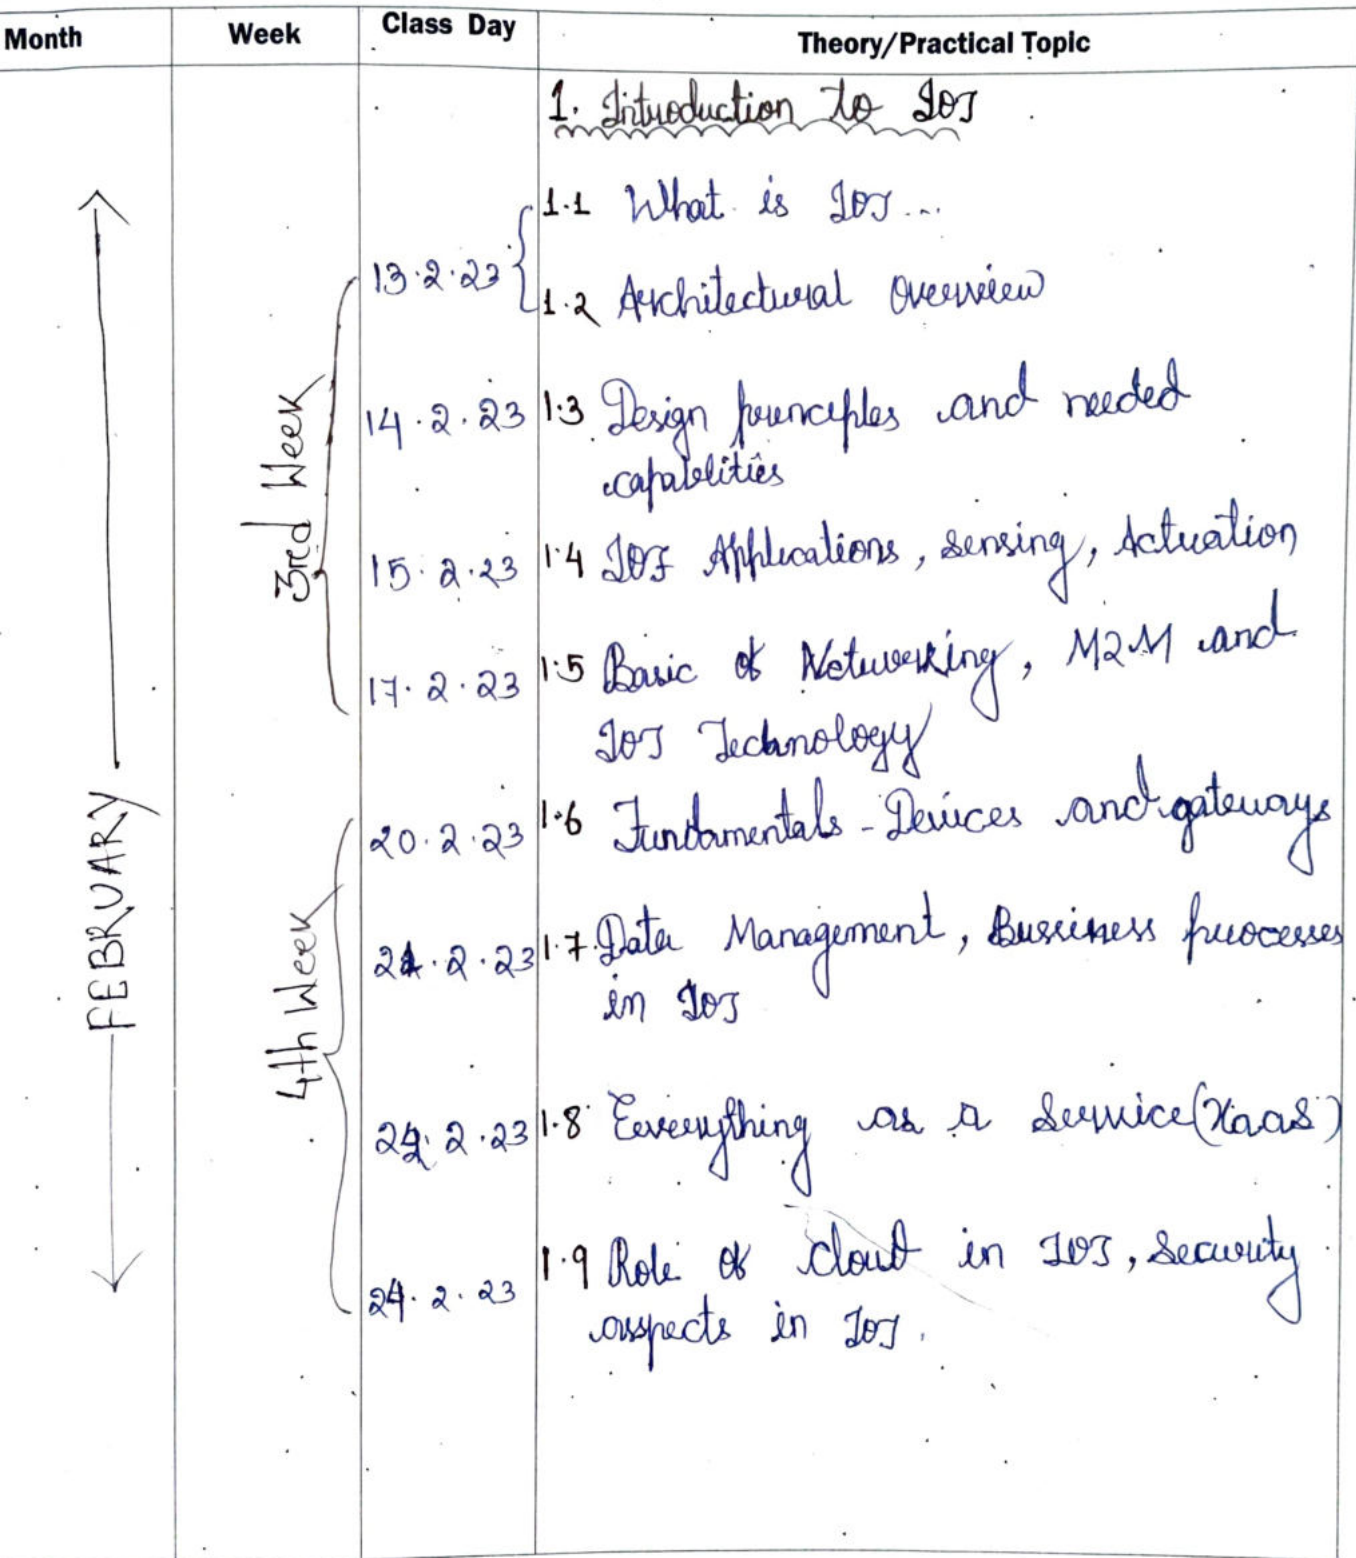 Month Week Class Day Theory/Practical Topic
1. Introduction to IOT
1.1 What is IOT...
13.2.23
1.2 Architectural Overview
3rd Week
14.2.23 1.3 Design principles and needed
capabilities
15.2.23 1.4 IOT Applications, sensing, Actuation
17.2.23 1.5 Basic of Networking, M2M and
IOT Technology
FEBRUARY
20.2.23 1.6 Fundamentals - Devices and gateways
4th Week
21.2.23 1.7 Data Management, Bussiness processes
in IOT
22.2.23 1.8 Everything as a Service (XaaS)
24.2.23 1.9 Role of cloud in IOT, Security
asspects in IOT.